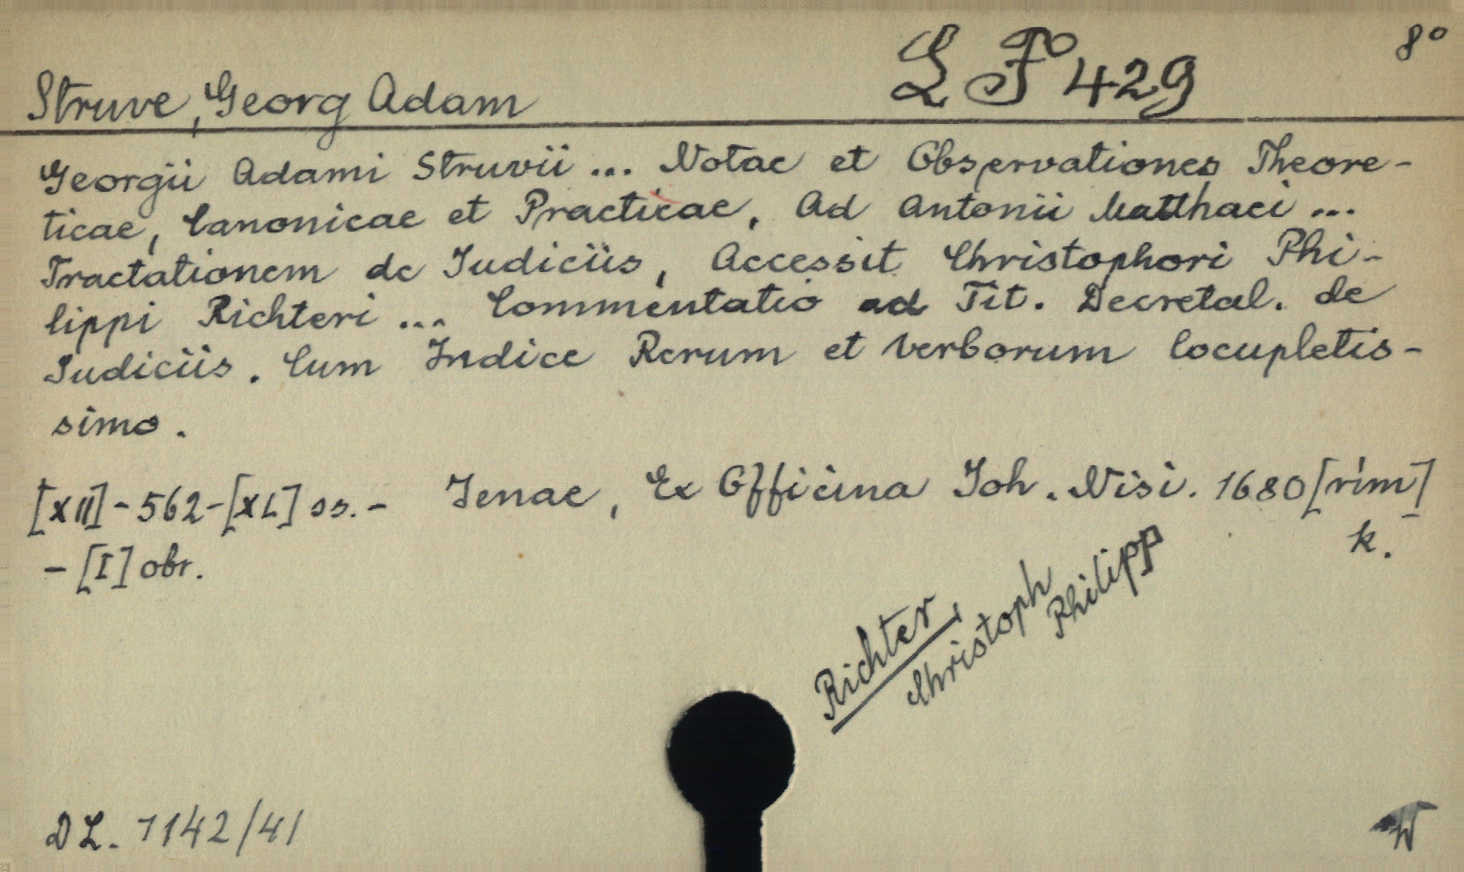 8°
L P 429
Struve, Georg Adam
Georgii Adami Struvii ... Notae et Observationes Theore-
ticae, Canonicae et Practicae, Ad Antonii Matthaei ...
Tractationem de Iudiciis, Accessit Christophori Phi-
lippi Richteri ... Commentatio ad Tit. Decretal. de
Iudiciis. Cum Indice Rerum et Verborum locupletis-
simo.
[XII]-562-[XL] ss. - Ienae, Ex Officina Joh. Nisi. 1680 [rim]
- [I] obr.
k.
Richter,
Christoph
Philipp
DL. 1142/41